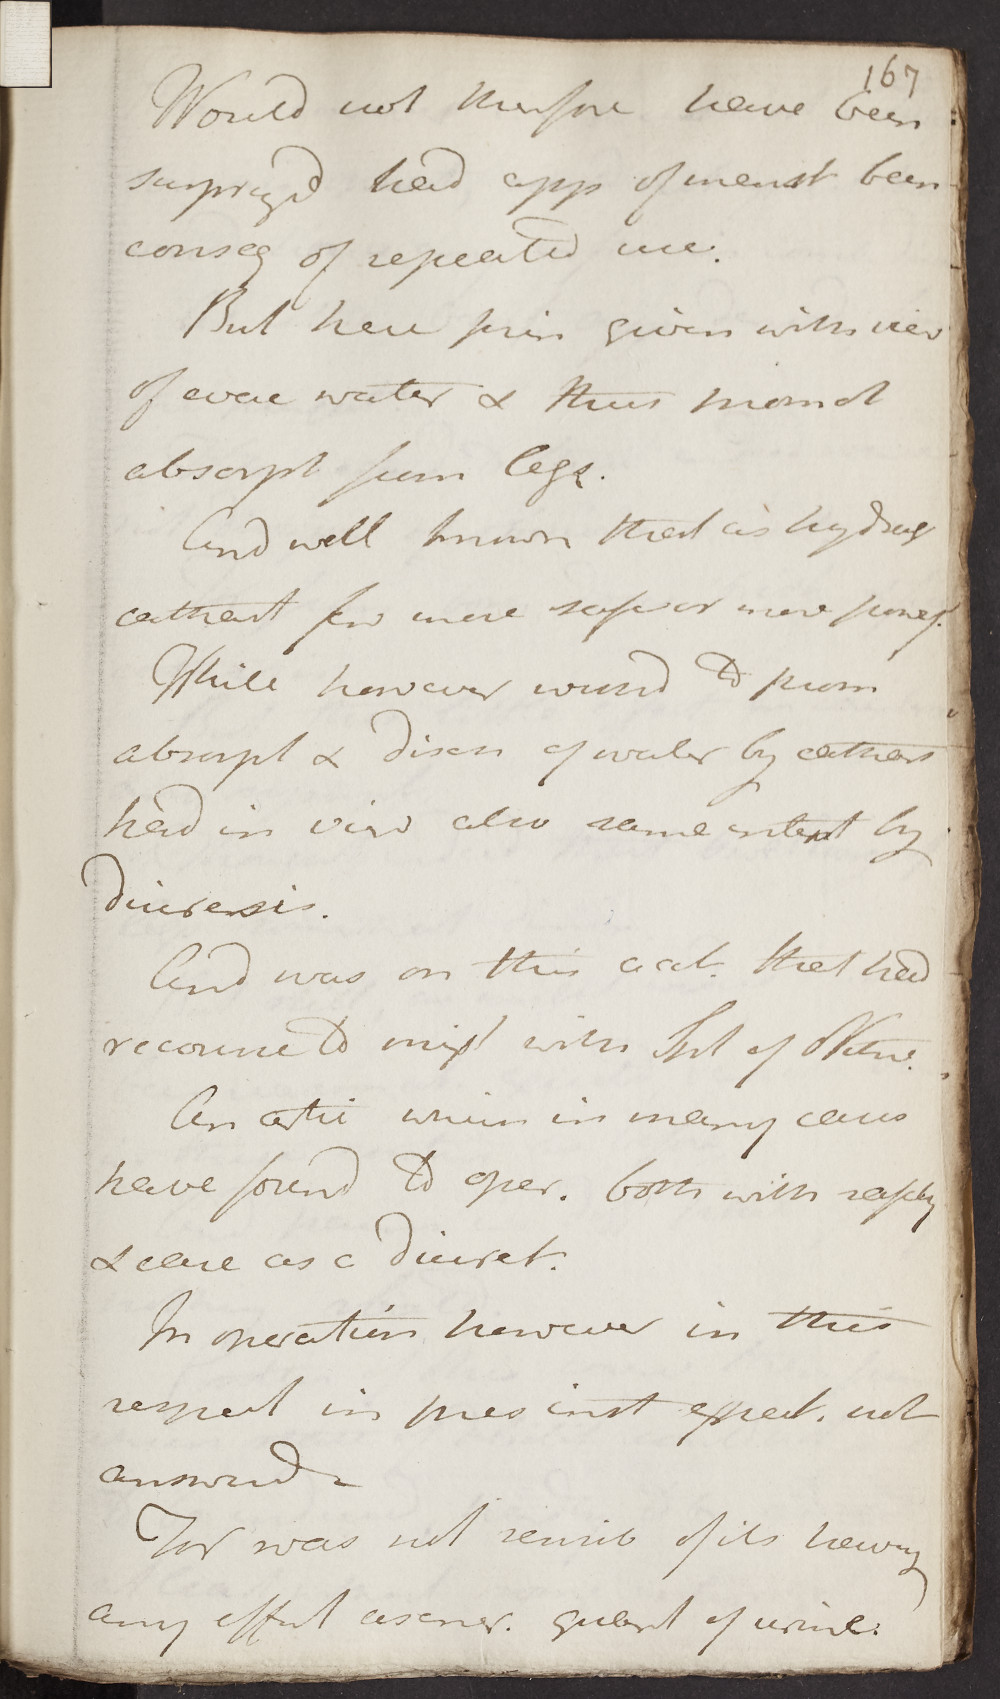 167
Would not therfore have been
surprized had app of menst been
conseq of repeated use.
But here prin given with view
of evac water & thus promot
absorpt from legs.
And well known that as hydrag
cathart few more safe or more powerf.
While however wishd to prom
absorpt & disch of water by cathart
had in view also same intent by
diuresis.
And was on this acct. that had
recourse to mixt with Spt of Nitre.
An artic which in many cases
have found to oper. both with safety
& ease as a diuret.
In operation however in this
respect in pres inst expect. not
answerd
For was not sensib of its having
any effect as incr. quant of urine.